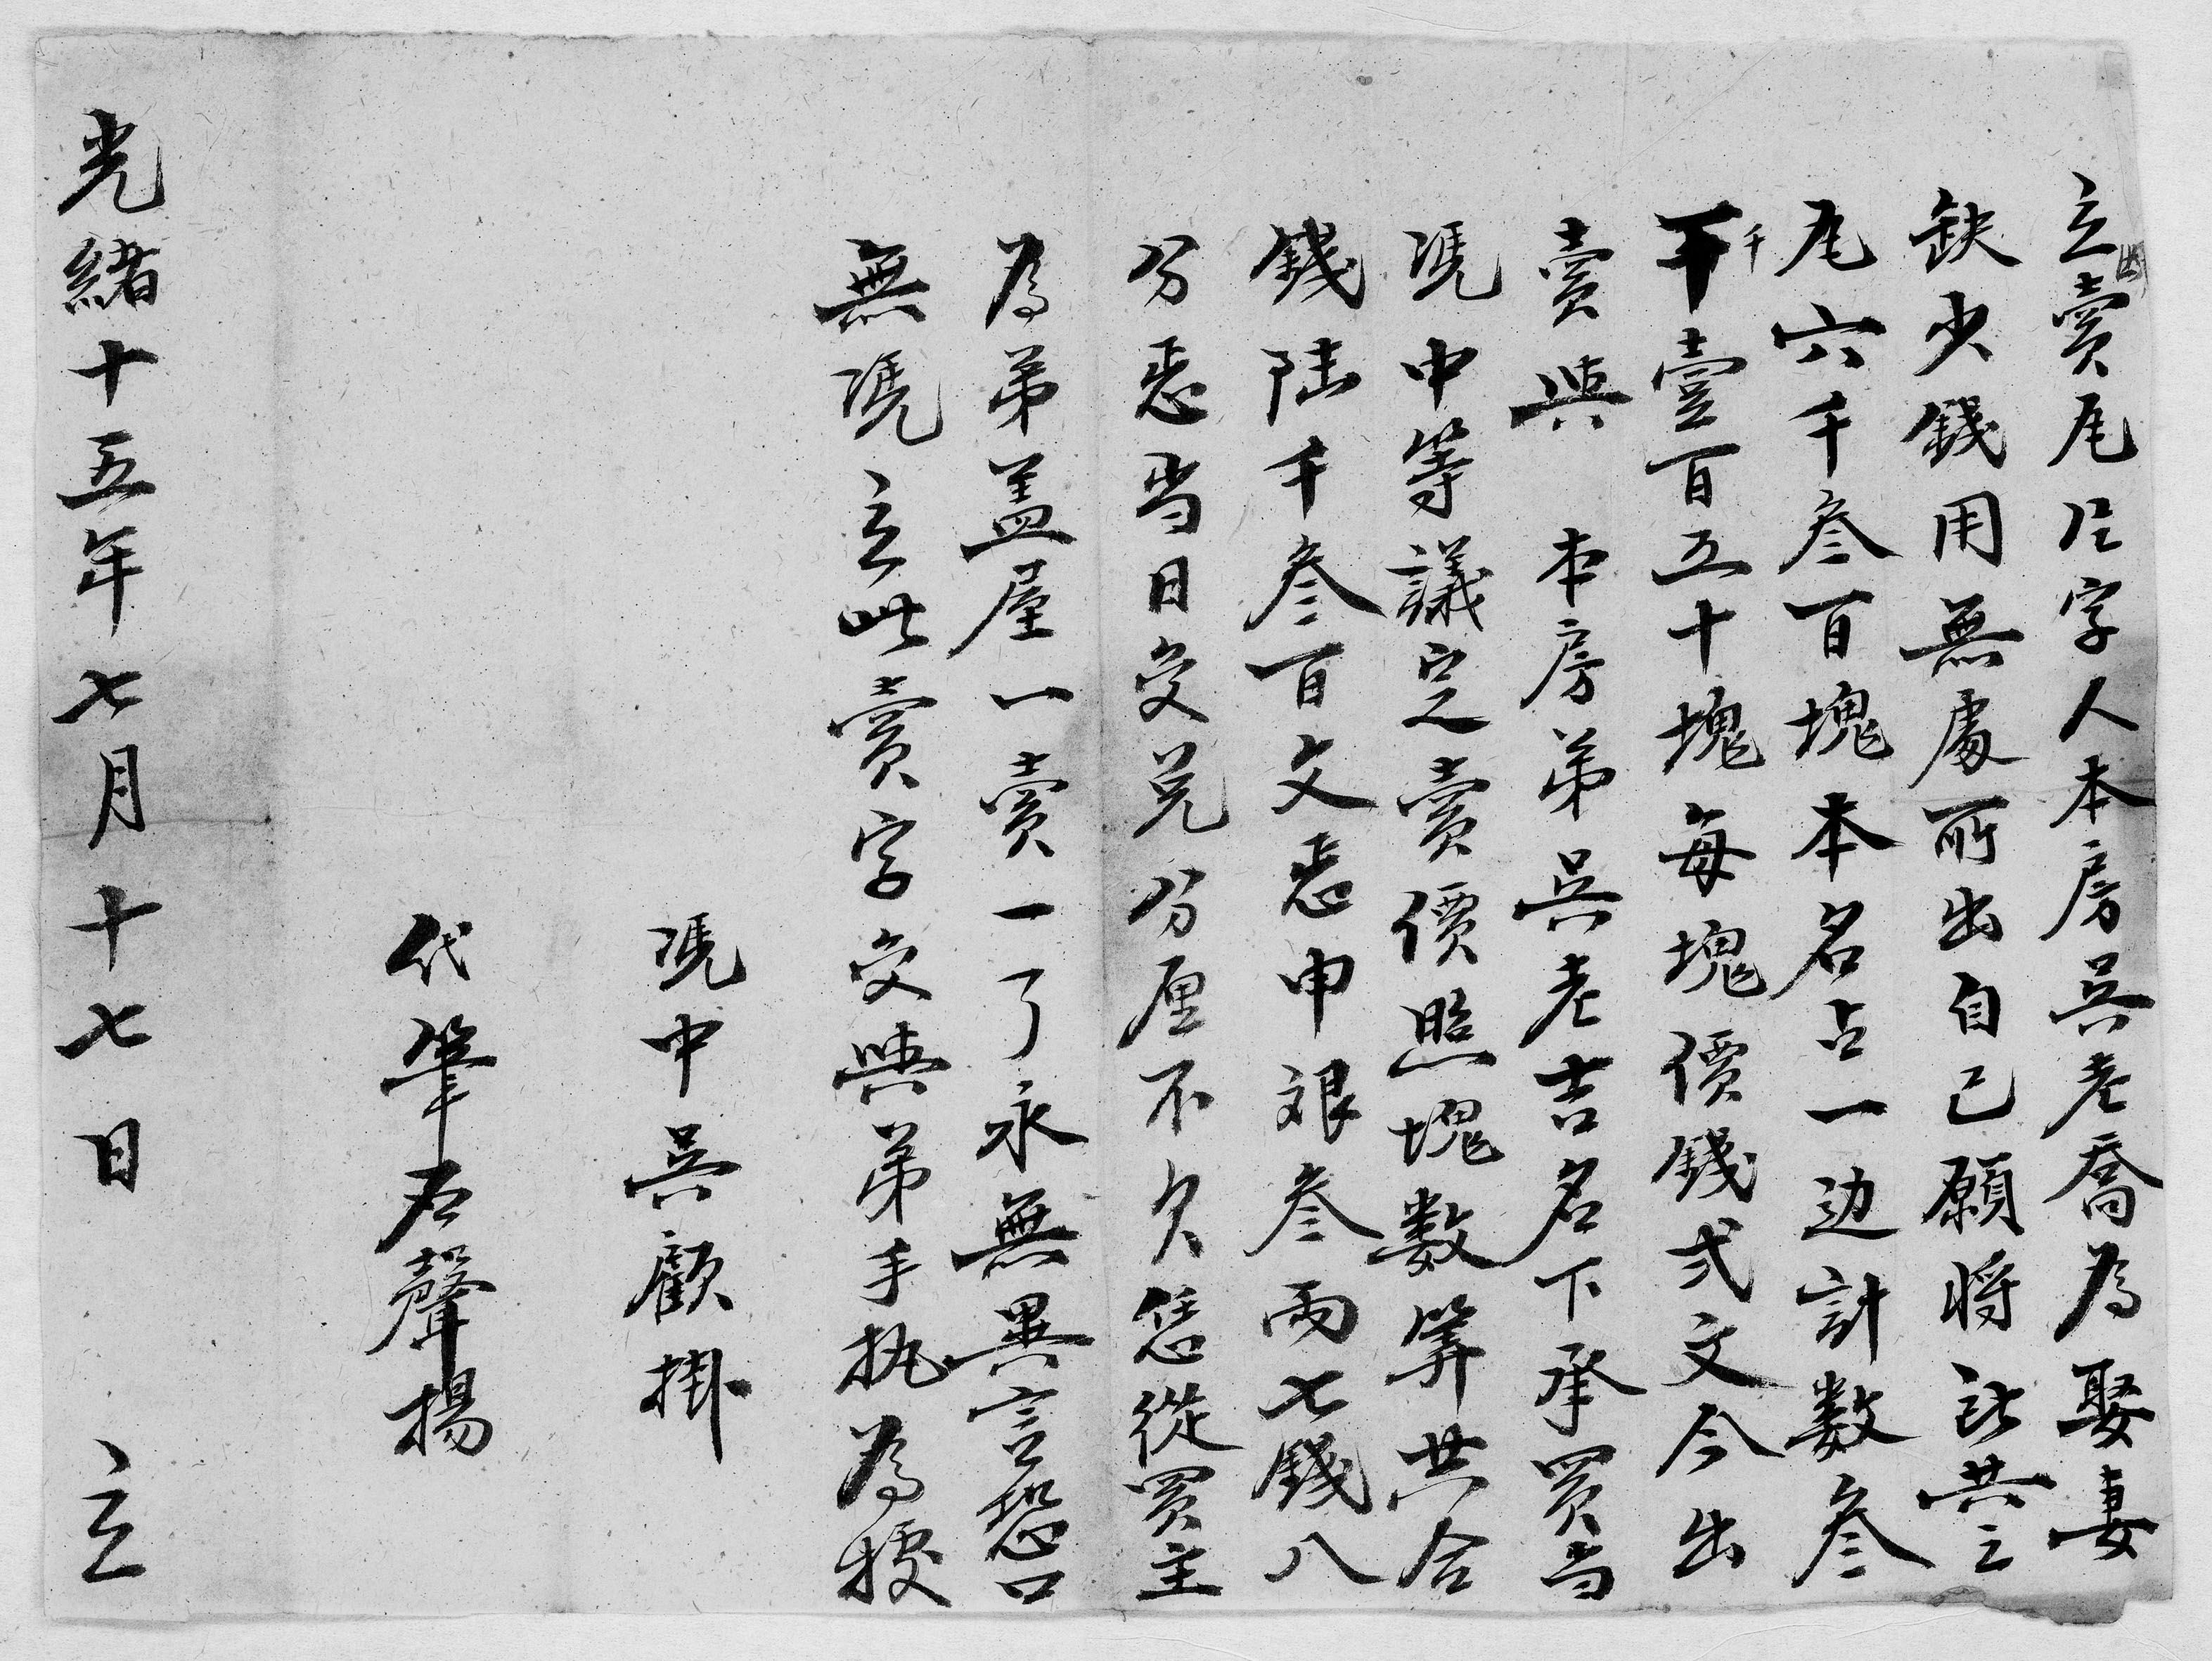 立賣瓦片字人本房吳老喬為娶妻
缺少錢用無處所出自己願將此共之
瓦六千叁百塊本名占一边計数叁
千壹百五十塊每塊價錢弍文今出
賣與　本房弟吳老吉名下承買当
凴中等議定賣價照塊数算共合
錢陆千叁百文悉申艮叁両七錢八
分悉当日交兑分厘不欠恁從買主
為弟盖屋一賣一了永無異言恐口
無凴立此賣字交與弟手执為據
凴中吳顧掛
代筆石聲揚
光緒十五年七月十七日　立